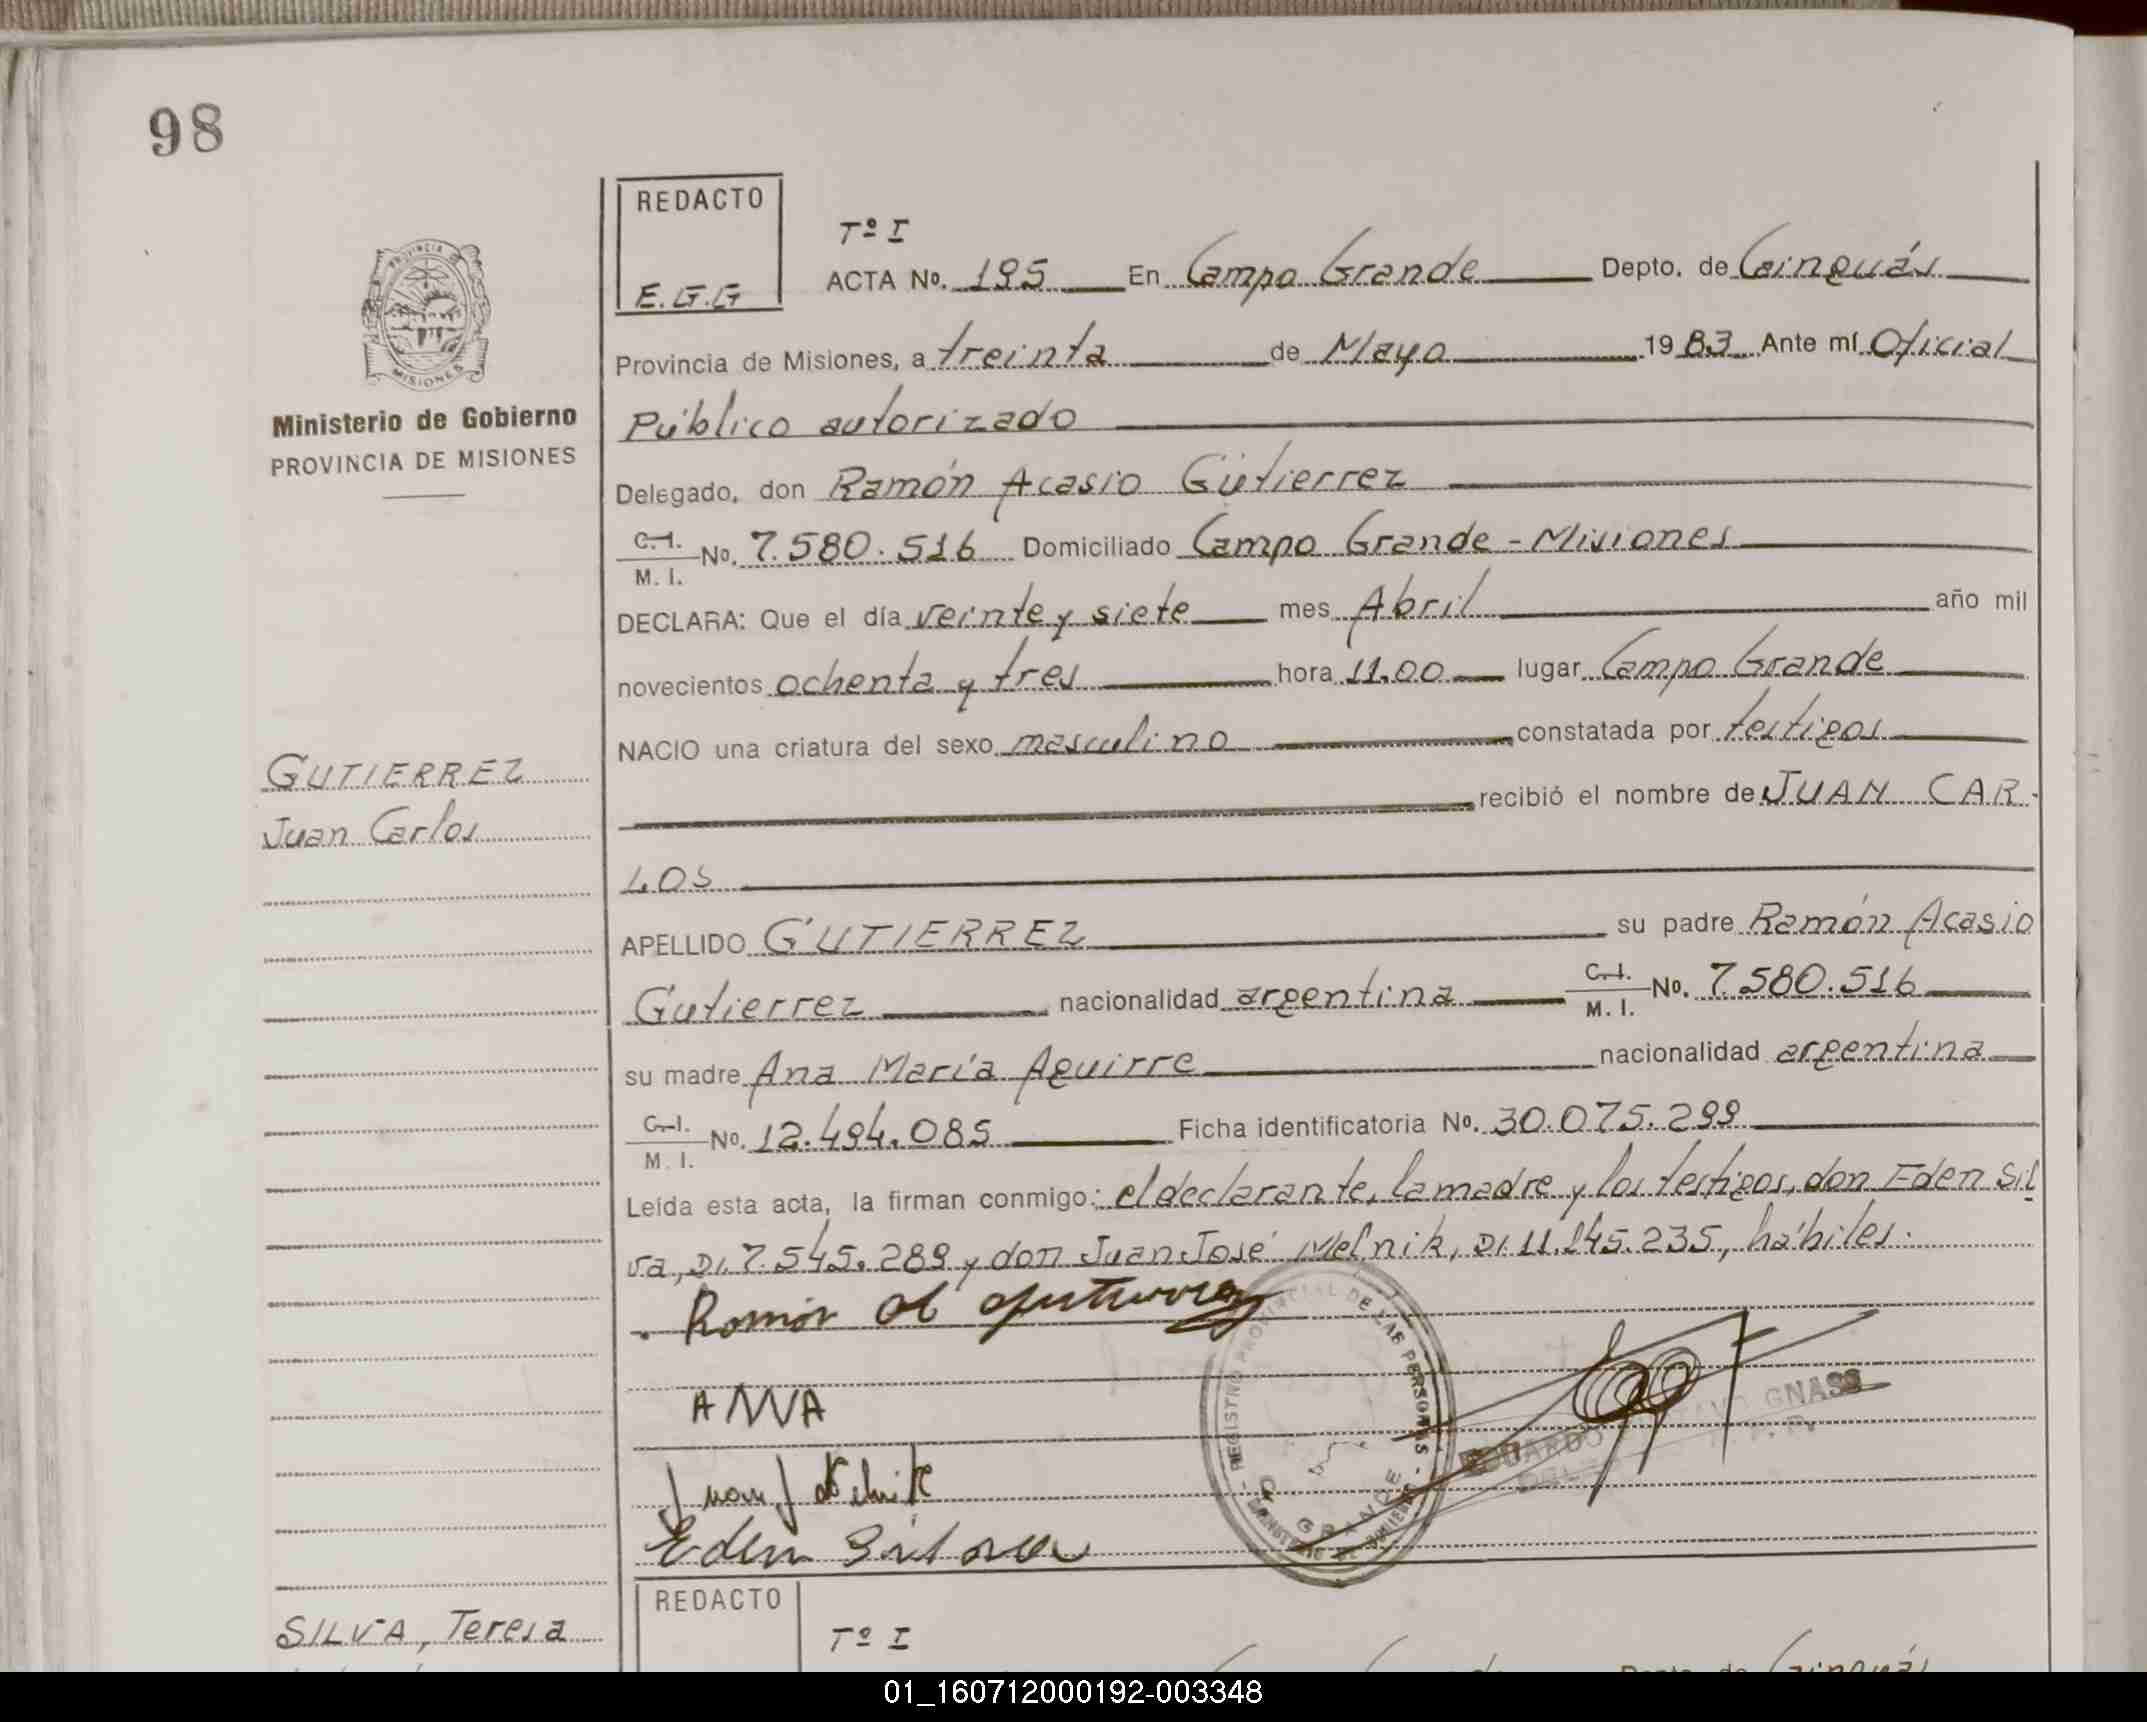 98
REDACTO
E.G.G
PROVINCIA DE
MISIONES
Ministerio de Gobierno
PROVINCIA DE MISIONES
Tº I
ACTA No. 195 En Campo Grande Depto. de Cainguás
Provincia de Misiones, a treinta de Mayo 1983 Ante mí Oficial
Público autorizado
Delegado, don Ramón Acasio Gutierrez
C.I. M. I. No. 7.580.516 Domiciliado Campo Grande - Misiones
DECLARA: Que el día veinte y siete mes Abril año mil
novecientos ochenta y tres hora 11.00 lugar Campo Grande
NACIO una criatura del sexo masculino constatada por testigos
recibió el nombre de JUAN CAR-
LOS
GUTIERREZ
Juan Carlos
APELLIDO GUTIERREZ su padre Ramón Acasio
Gutierrez nacionalidad argentina C.I. M. I. No. 7.580.516
su madre Ana María Aguirre nacionalidad argentina
C.I. M. I. No. 12.494.085 Ficha identificatoria No. 30.075.299
Leída esta acta, la firman conmigo: el declarante, la madre y los testigos, don Eden Sil
va, DI. 7.545.289 y don Juan José Melnik, DI. 11.145.235, hábiles.
Ramón A Gutierrez
ANA
Juan J Melnik
Eden Silva
REGISTRO PROVINCIAL DE LAS PERSONAS
GRANDE
MINISTERIO DE GOBIERNO
EDUARDO GNASS
REDACTO
Tº I
SILVA, Teresa
Cainguás
01_160712000192-003348